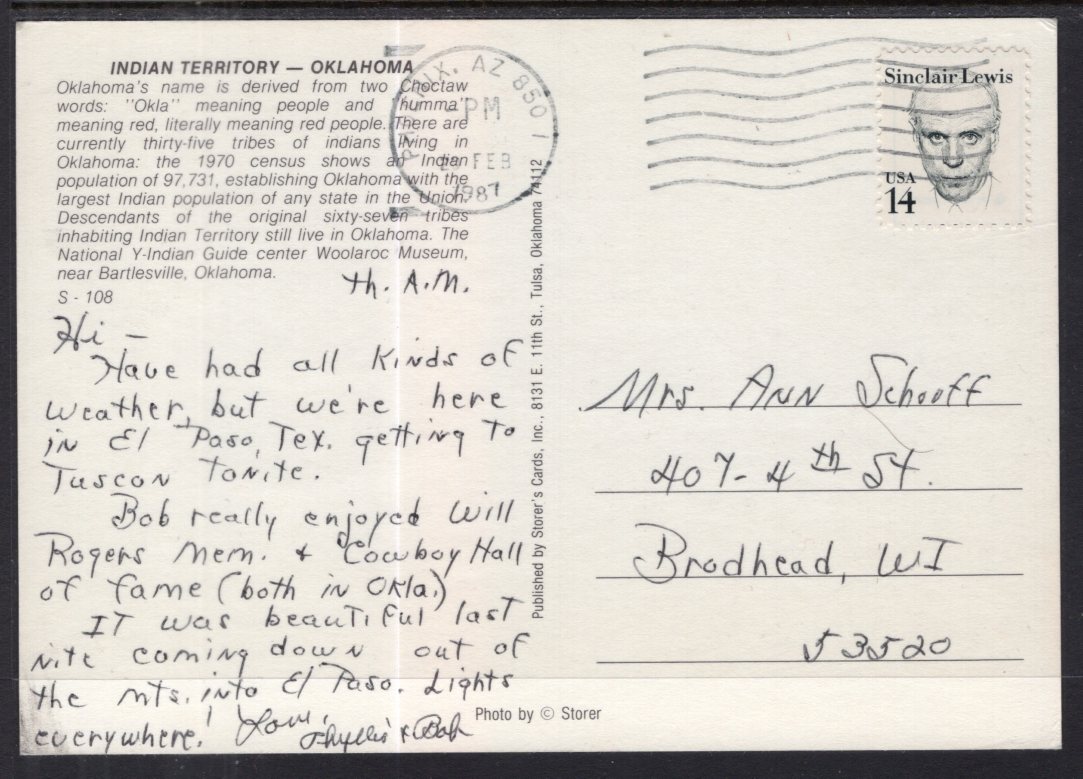 INDIAN TERRITORY — OKLAHOMA
Oklahoma's name is derived from two Choctaw
words: "Okla" meaning people and "humma"
meaning red, literally meaning red people. There are
currently thirty-five tribes of indians living in
Oklahoma: the 1970 census shows an Indian
population of 97,731, establishing Oklahoma with the
largest Indian population of any state in the Union.
Descendants of the original sixty-seven tribes
inhabiting Indian Territory still live in Oklahoma. The
National Y-Indian Guide center Woolaroc Museum,
near Bartlesville, Oklahoma.
S - 108
th. A.M.
Hi —
Have had all kinds of
weather, but we're here
in El Paso, Tex. getting to
Tuscon tonite.
Bob really enjoyed Will
Rogers Mem. & Cowboy Hall
of fame (both in Okla.)
It was beautiful last
nite coming down out of
the mts. into El Paso. Lights
everywhere!
Love,
Phyllis & Bob
Published by Storer's Cards, Inc., 8131 E. 11th St., Tulsa, Oklahoma 74112
Photo by © Storer
AZ 850
PM
FEB
1987
Sinclair Lewis
USA
14
Mrs. Ann Schooff
407-4th St.
Brodhead, WI
53520